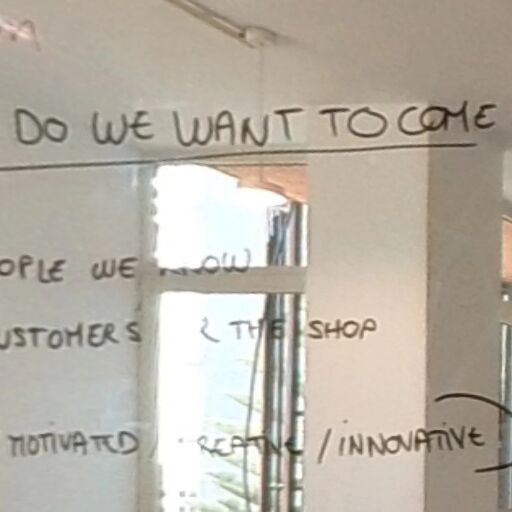 DO WE WANT TO COME
OPLE WE KNOW
USTOMERS & THE SHOP
MOTIVATED / CREATIVE / INNOVATIVE